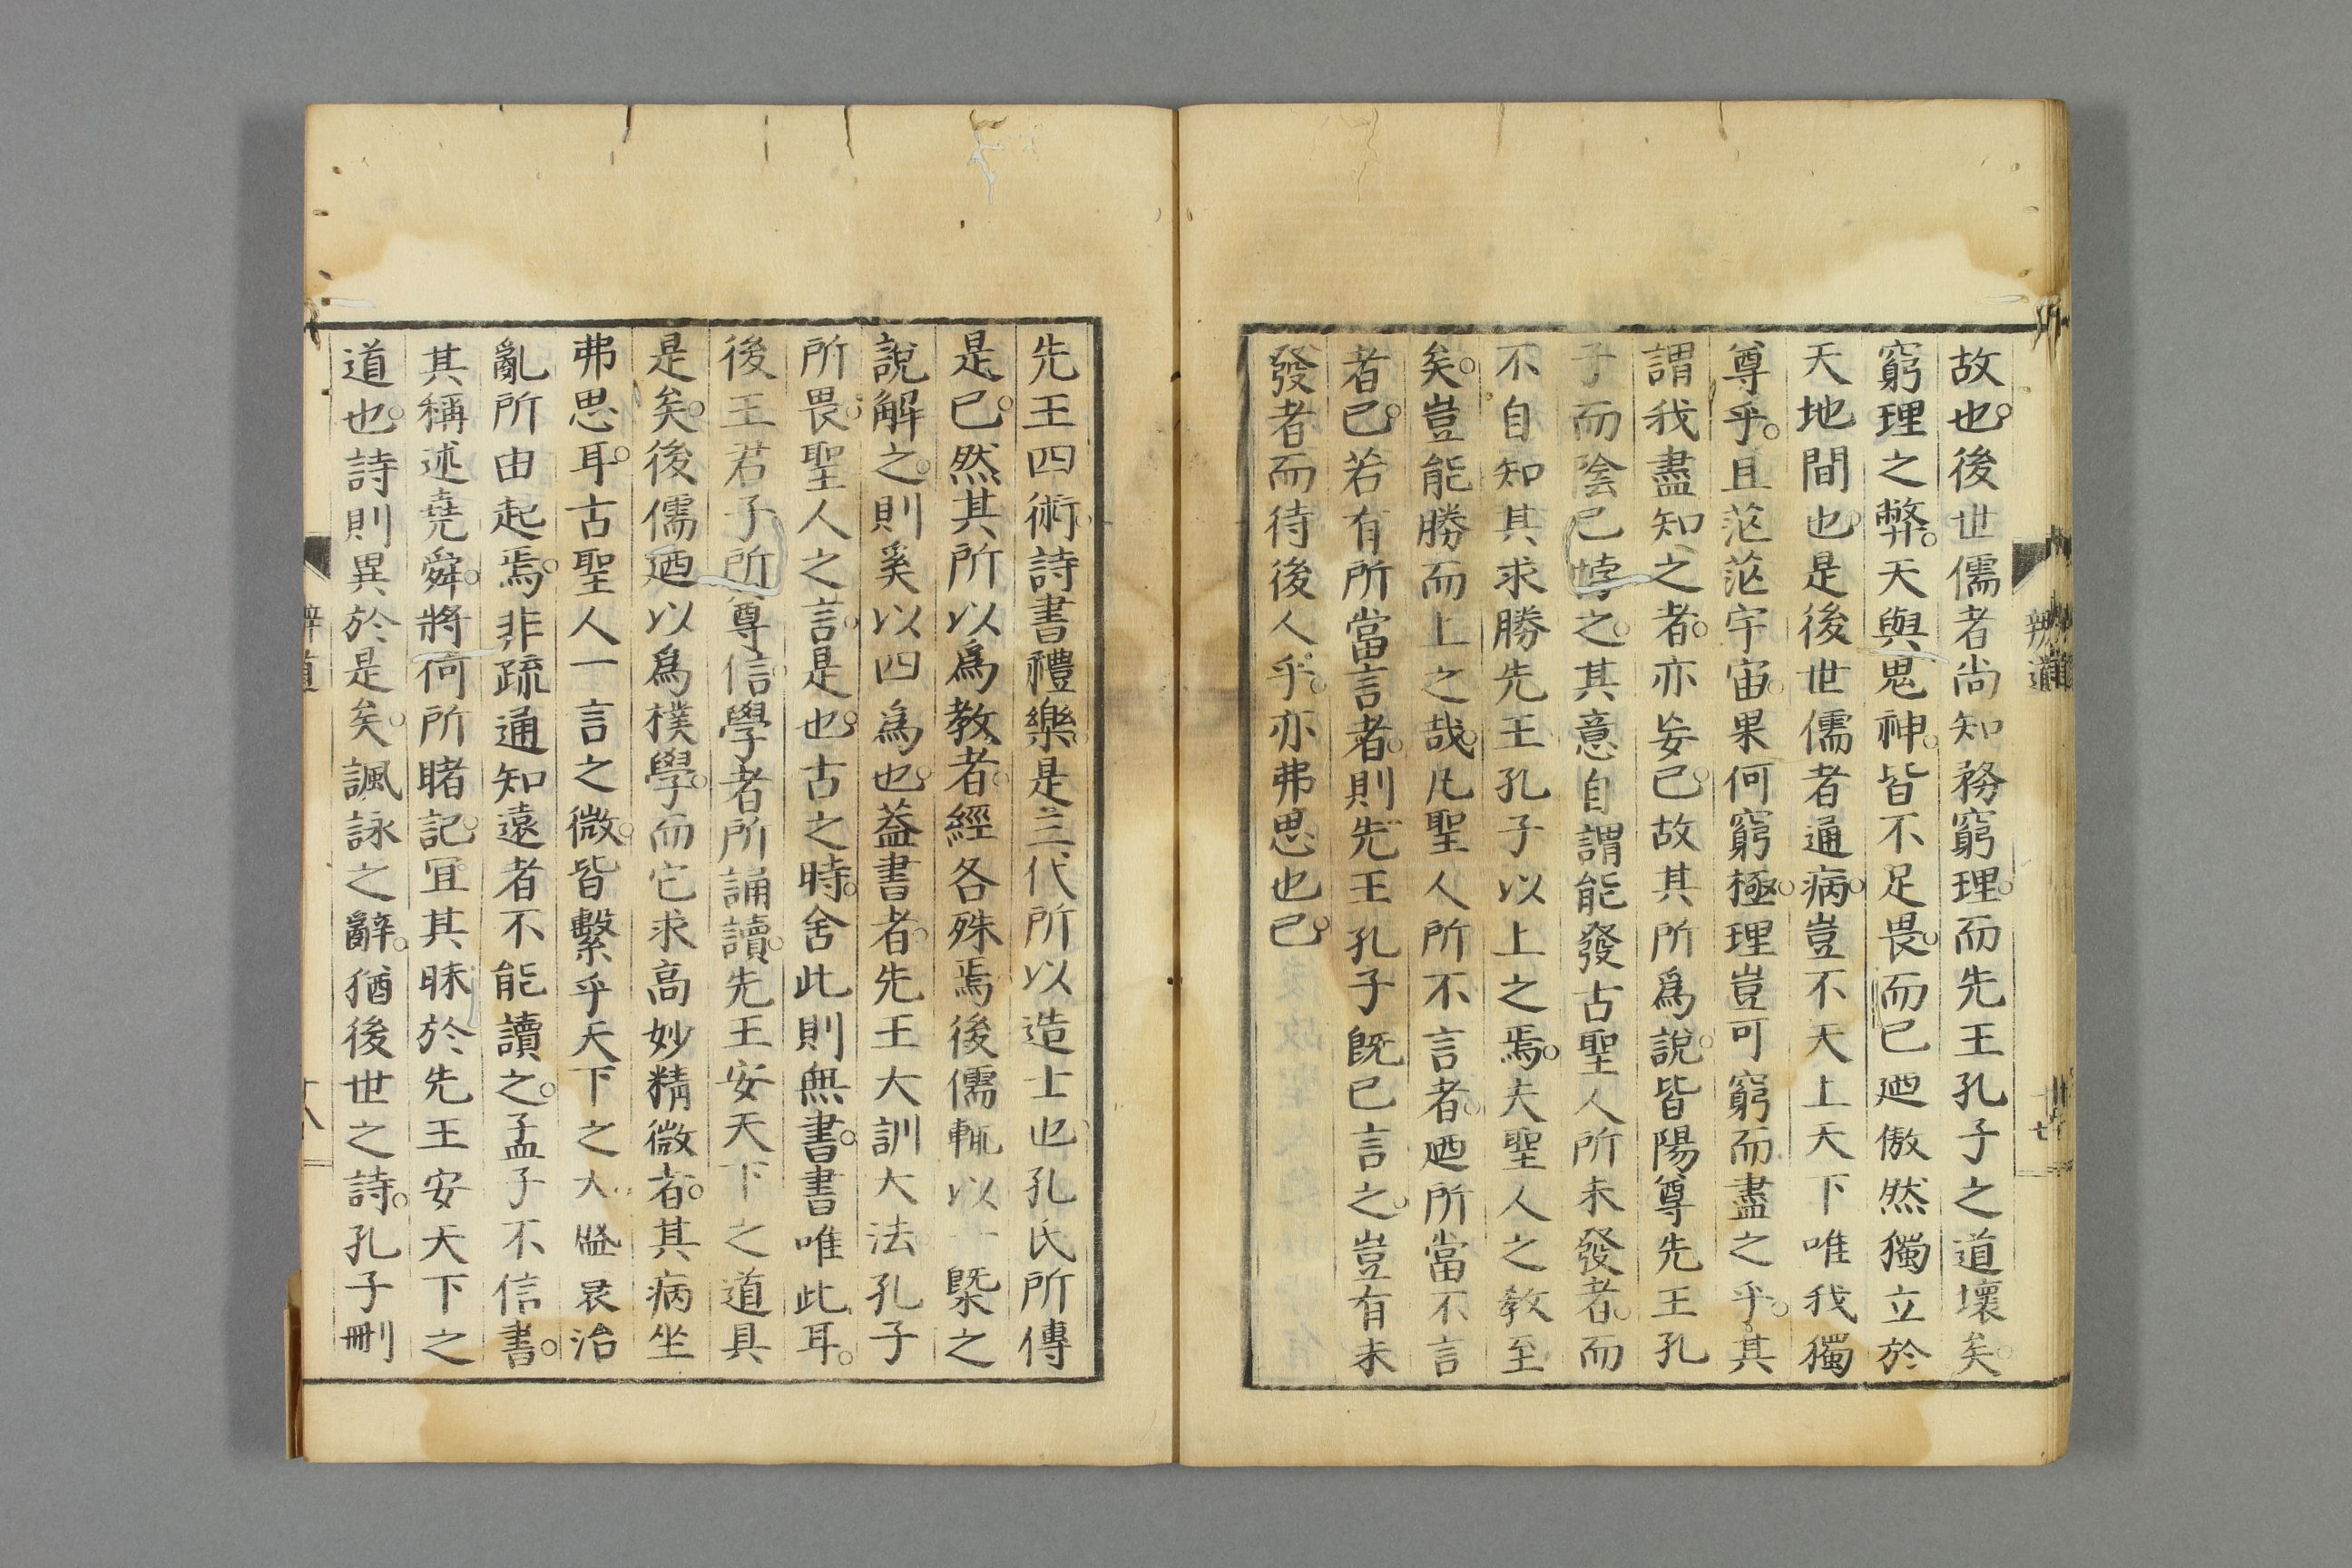 故也。後世儒者尚知務窮理。而先王孔子之道壞矣。
窮理之弊。天與鬼神。皆不足畏。而己廼傲然獨立於
天地間也。是後世儒者通病。豈不天上天下唯我獨
尊乎。且茫茫宇宙。果何窮極。理豈可窮而盡之乎。其
謂我盡知之者。亦妄已。故其所爲說。皆陽尊先王孔
子而陰已悖之。其意自謂能發古聖人所未發者。而
不自知其求勝先王孔子以上之焉。夫聖人之教至
矣。豈能勝而上之哉。凡聖人所不言者。廼所當不言
者已。若有所當言者。則先王孔子既已言之。豈有未
發者而待後人乎。亦弗思也已。
辨道
十七
先王四術。詩書禮樂。是三代所以造士也。孔氏所傳
是已。然其所以爲教者。經各殊焉。後儒輒以一槩之
說解之。則奚以四爲也。葢書者。先王大訓大法。孔子
所畏。聖人之言。是也。古之時。舍此則無書。書唯此耳。
後王君子所尊信。學者所誦讀。先王安天下之道具
是矣。後儒廼以爲樸學。而它求高妙精微者。其病坐
弗思耳。古聖人一言之微。皆繫乎天下之大。盛衰治
亂所由起焉。非疏通知遠者不能讀之。孟子不信書。
其稱述堯舜。將何所睹記。宜其昧於先王安天下之
道也。詩則異於是矣。諷詠之辭。猶後世之詩。孔子刪
辨道
十八